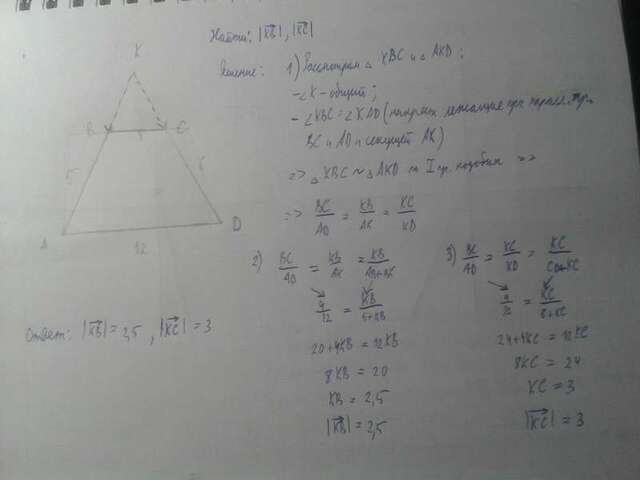 Найти: |KB|, |KC|
Решение: 1) Рассмотрим △ KBC и △ AKD;
- ∠K - общий;
- ∠KBC = ∠KAD (накрест лежащие при паралл. пр.
BC и AD и секущей AK)
=> △ KBC ~ △ AKD по I пр. подобия =>
=> BC/AD = KB/AK = KC/KD
2) BC/AD = KB/AK = KB/AB+BK
4/12 = KB/5+KB
20+4KB = 12KB
8KB = 20
KB = 2,5
|KB| = 2,5
3) BC/AD = KC/KD = KC/CD+KC
4/12 = KC/6+KC
24+4KC = 12KC
8KC = 24
KC = 3
|KC| = 3
K
B
C
4
5
6
A
D
12
Ответ: |KB| = 2,5, |KC| = 3